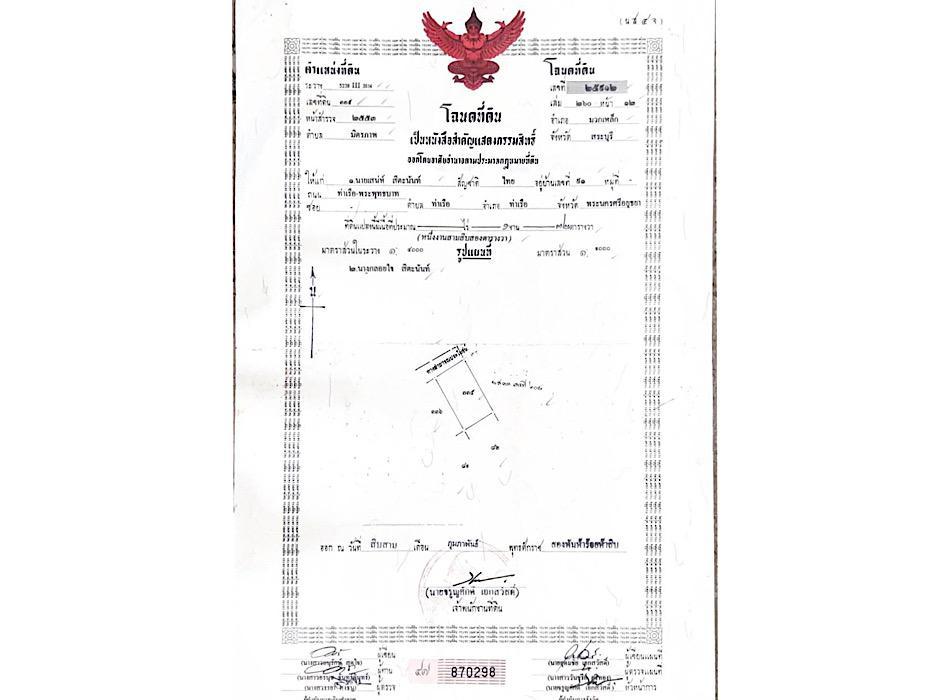 (น.ส. ๔ จ)
ตำแหน่งที่ดิน
ระวาง 5238 III 2614
เลขที่ดิน ๓๓๕
หน้าสำรวจ ๒๕๕๓
ตำบล มิตรภาพ
โฉนดที่ดิน
เลขที่ ๒๕๕๑๒
เล่ม ๒๖๐ หน้า ๑๒
อำเภอ มวกเหล็ก
จังหวัด สระบุรี
โฉนดที่ดิน
เป็นหนังสือสำคัญแสดงกรรมสิทธิ์
ออกโดยอาศัยอำนาจตามประมวลกฎหมายที่ดิน
ให้แก่ ๑.นายเสน่ห์ สีตะนันท์ สัญชาติ ไทย อยู่บ้านเลขที่ ๔๑ หมู่ที่ -
ถนน ท่าเรือ-พระพุทธบาท
ซอย - ตำบล ท่าเรือ อำเภอ ท่าเรือ จังหวัด พระนครศรีอยุธยา
ที่ดินแปลงนี้มีเนื้อที่ประมาณ - ไร่ ๑ งาน ๓๒ ตารางวา
(หนึ่งงานสามสิบสองตารางวา)
มาตราส่วนในระวาง ๑: ๔๐๐๐ รูปแผนที่ มาตราส่วน ๑: ๑๐๐๐
๒.นางกลอยใจ สีตะนันท์
น
๓๓๕
๓๓๖
๘๒
๘๑
ออก ณ วันที่ สิบสาม เดือน กุมภาพันธ์ พุทธศักราช สองพันห้าร้อยห้าสิบ
(นายจรูญศักดิ์ เอกสวัสดิ์)
เจ้าพนักงานที่ดิน
ผู้เขียน
ผู้ทาน
ผู้ตรวจ
870298
ผู้เขียนแผนที่
ผู้ตรวจแผนที่
หัวหน้าการ